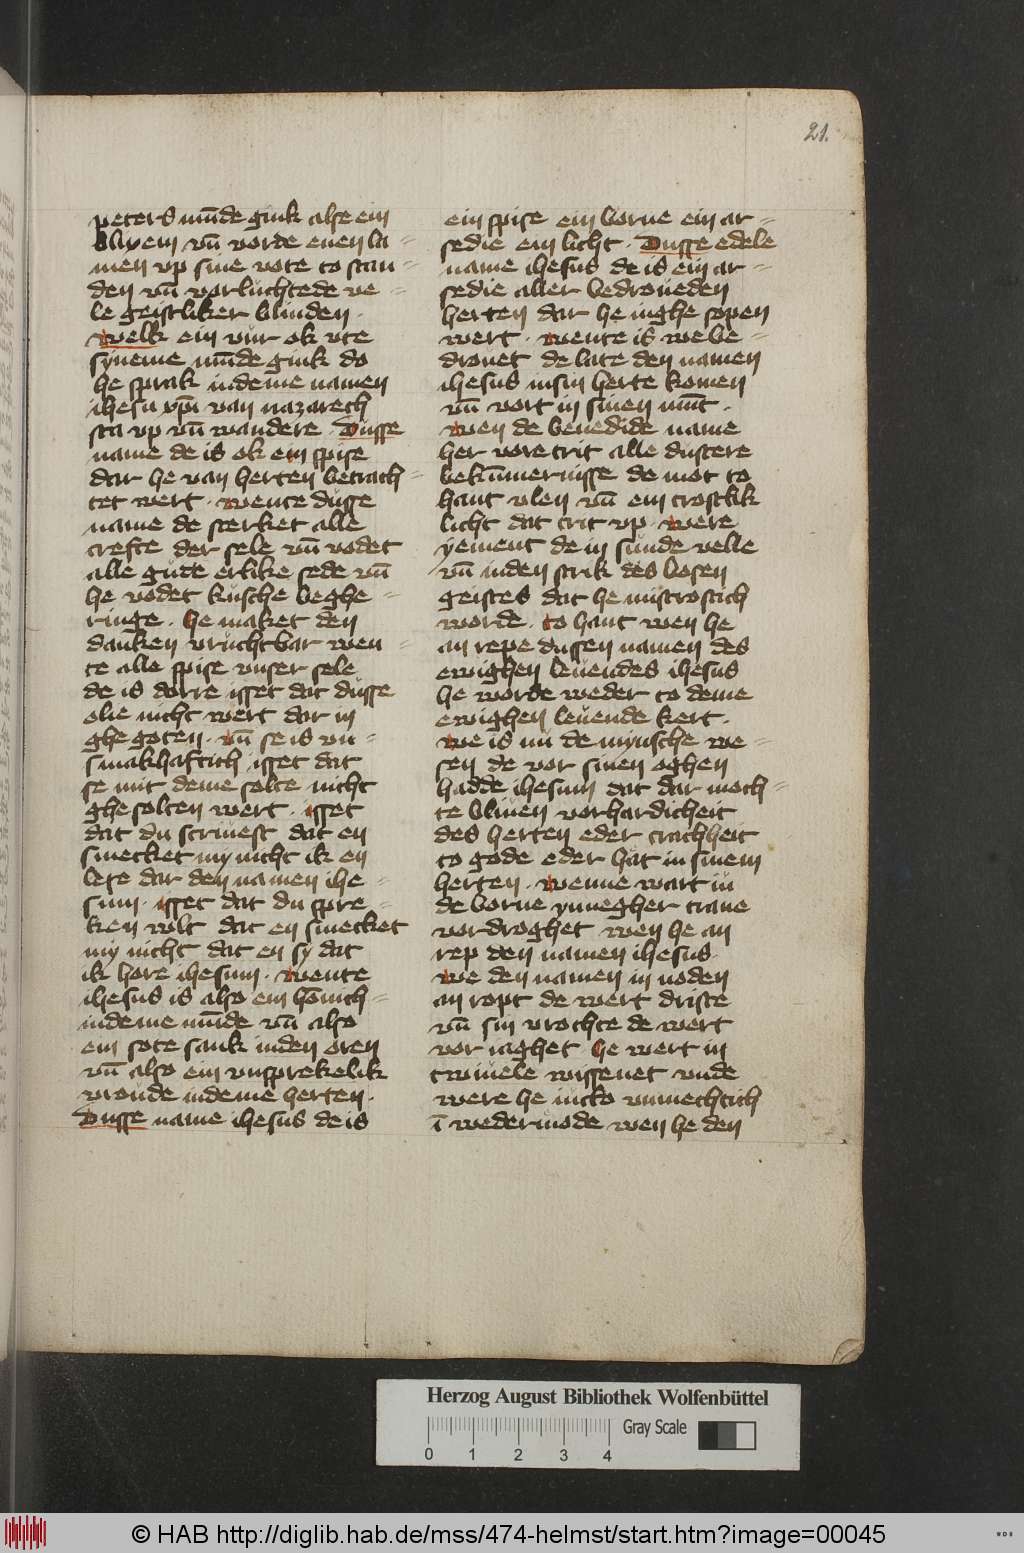 21.
peters mūde gink alse ein
blixem vn̄ vorde euen la=
men vp sine vote to stan=
den vn̄ vorluchtede ve=
le geistliker blinden.
welk ein vur ok vte
syneme mūde gink do
he sprak indeme namen
ihesu xp̄i van nazareth
sta vp vn̄ wandere. Dusse
name de is ok ein spise
dar he van herten betrach=
tet wert. wente dusse
name de sterket alle
crefte der sele vn̄ vodet
alle gude erlike sede vn̄
he vodet kusche beghe=
ringe. he maket den
danken vruchtbar wen=
te alle spise vnser sele
de is dorre isset dat dusse
olie nicht wert dar in
ghe goten. vn̄ se is vn=
smakhaftich isset dat
se mit deme solte nicht
ghe solten wert. isset
dat du scriuest dat en
smecket my nicht ik en
lese dar den namen ihe=
sum. isset dat du spre=
ken wlt dat en smecket
my nicht dat en sy dat
ik hore ihesum. wente
ihesus is also ein hōnich=
indeme mūde vn̄ also
ein sote sank inden oren
vn̄ also ein vnsprekelik
vroude indeme herten.
Dusse name ihesus de is
ein spise ein borne ein ar=
sedie ein licht. Dusse edele
name ihesus de is ein ar=
sedie aller bedroueden
herten dar he inghe sopen
wert. wente is we be=
drouet de late den namen
ihesus in sin herte komen
vn̄ vort in sinen mūt.
wen de benedide name
her vore trit alle dustere
bekūmernisse de mot to
hant vlen vn̄ ein trostlik
licht dat trit vp. were
yement de in sunde velle
vn̄ inden strik des bosen
geistes dat he mistrostich
worde. to hant wen he
an repe dussen namen des
ewighen leuendes ihesus
he worde weder to deme
ewighen leuende kert.
we is nu de mynsche we=
sen de vor sinen oghen
hadde ihesum dat dar moch=
te bliuen vorhardicheit
des herten eder trachheit
to gode eder hat in sinem
herten. wenne wart iu
de borne ynnegher trane
vordroghet wen he an
rep den namen ihesus.
we den namen in noden
an ropt de wert driste
vn̄ sin vrochte de wert
vor iaghet he wert in
twiuele wissenet vnde
were he iucko vnmechtich
ī wedermode wen he den
Herzog August Bibliothek Wolfenbüttel
0 1 2 3 4
Gray Scale
© HAB http://diglib.hab.de/mss/474-helmst/start.htm?image=00045